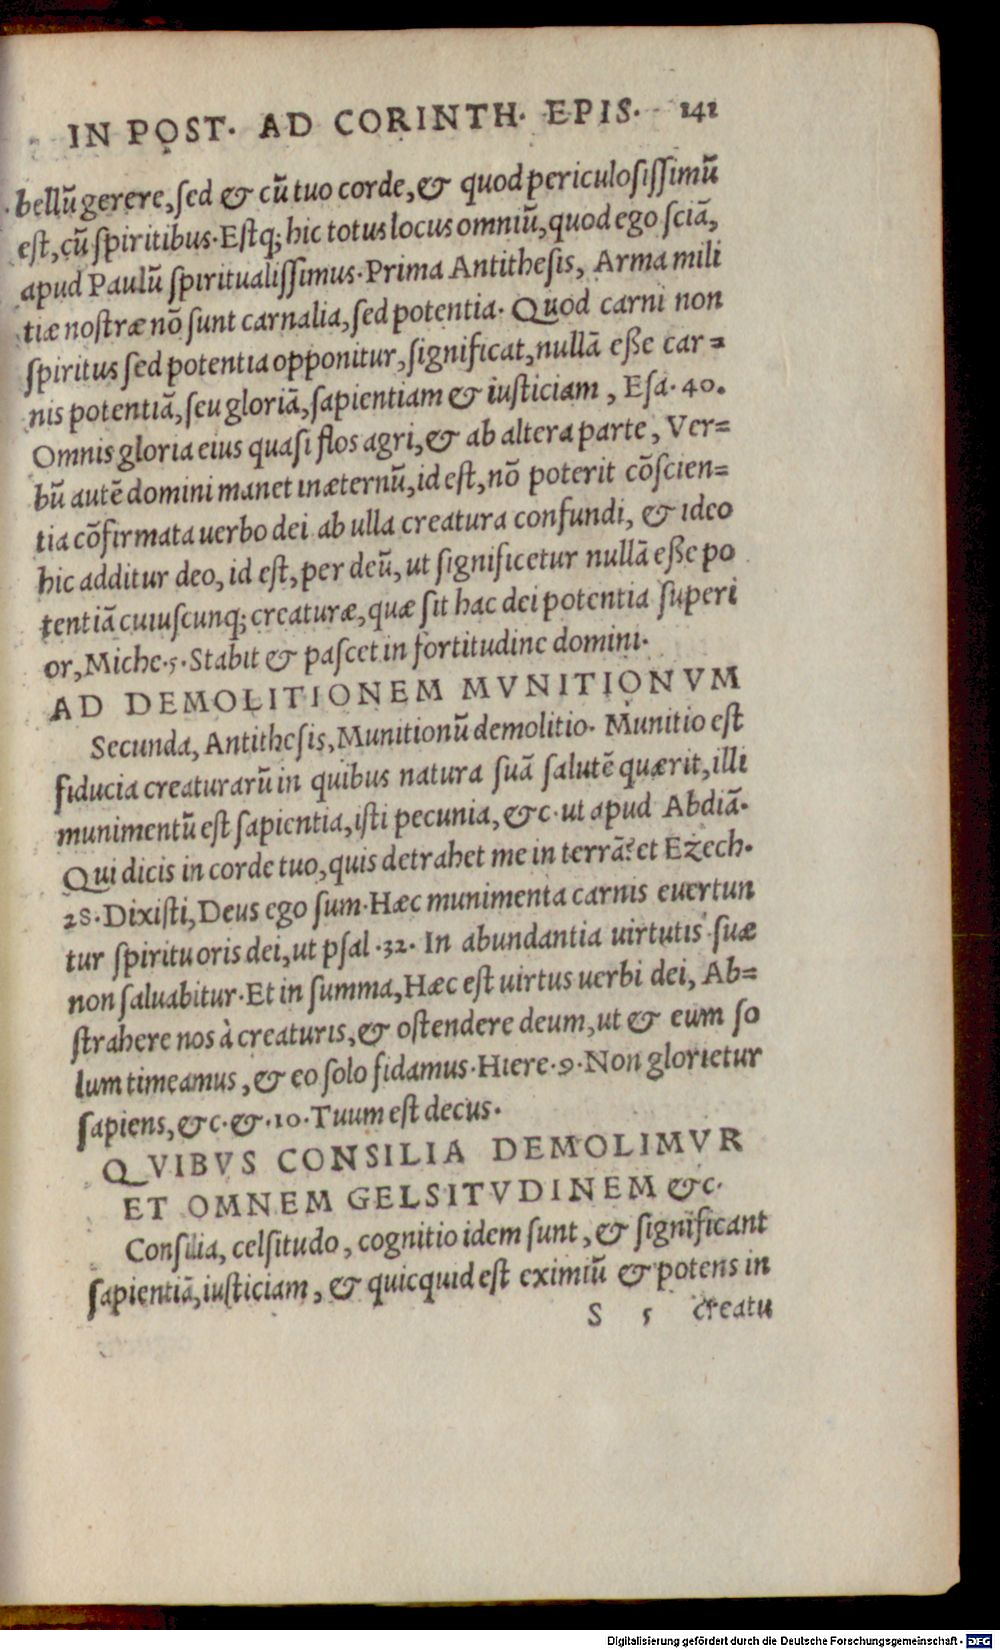 IN POST. AD CORINTH. EPIS. 141
bellū gerere, ſed & cū tuo corde, & quod periculoſiſſimū
eſt, cū ſpiritibus. Eſtq; hic totus locus omniū, quod ego ſciā,
apud Paulū ſpiritualiſſimus. Prima Antitheſis, Arma mili
tiæ noſtræ nō ſunt carnalia, ſed potentia. Quod carni non
ſpiritus ſed potentia opponitur, ſignificat, nullā eße car=
nis potentiā, ſeu gloriā, ſapientiam & iuſticiam, Eſa. 40.
Omnis gloria eius quaſi flos agri, & ab altera parte, Ver=
bū autē domini manet inæternū, id eſt, nō poterit cōſcien=
tia cōfirmata uerbo dei ab ulla creatura confundi, & ideo
hic additur deo, id eſt, per deū, ut ſignificetur nullā eße po
tentiā cuiuſcunq; creaturæ, quæ ſit hac dei potentia ſuperi
or, Miche. 5. Stabit & paſcet in fortitudine domini.
AD DEMOLITIONEM MVNITIONVM
Secunda, Antitheſis, Munitionū demolitio. Munitio eſt
fiducia creaturarū in quibus natura ſuā ſalutē quærit, illi
munimentū eſt ſapientia, iſti pecunia, &c. ut apud Abdiā.
Qui dicis in corde tuo, quis detrahet me in terrā? et Ezech.
28. Dixiſti, Deus ego ſum. Hæc munimenta carnis euertun
tur ſpiritu oris dei, ut pſal. 32. In abundantia uirtutis ſuæ
non ſaluabitur. Et in ſumma, Hæc eſt uirtus uerbi dei, Ab=
ſtrahere nos à creaturis, & oſtendere deum, ut & eum ſo
lum timeamus, & eo ſolo fidamus. Hiere. 9. Non glorietur
ſapiens, &c. &. 10. Tuum eſt decus.
QVIBVS CONSILIA DEMOLIMVR
ET OMNEM GELSITVDINEM &c.
Conſilia, celſitudo, cognitio idem ſunt, & ſignificant
ſapientiā, iuſticiam, & quicquid eſt eximiū & potens in
S 5 creatu
Digitalisierung gefördert durch die Deutsche Forschungsgemeinschaft - DFG